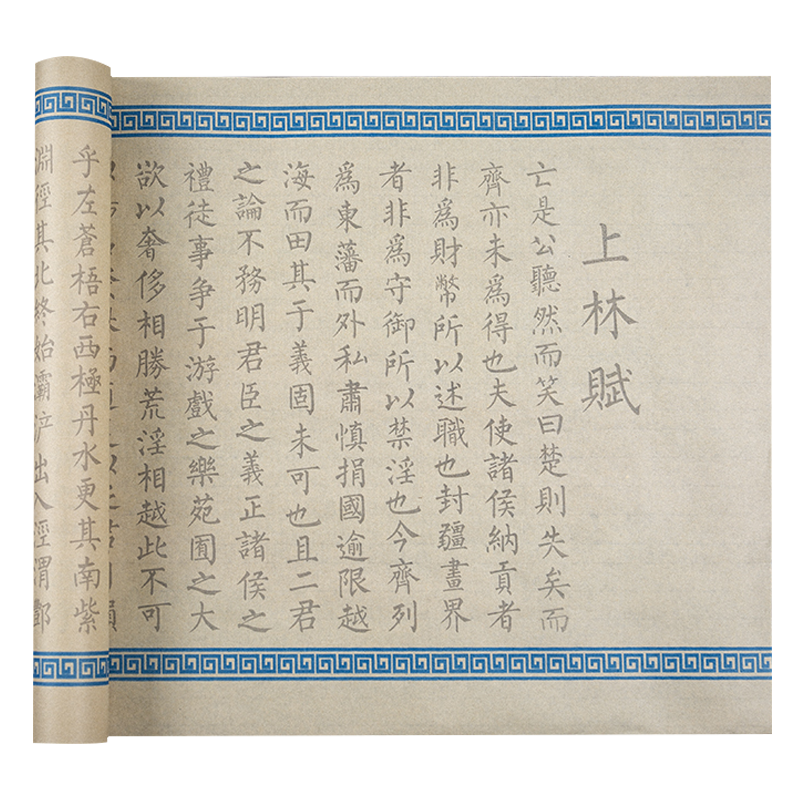 上林賦
亡是公聽然而笑曰楚則失矣而
齊亦未爲得也夫使諸侯納貢者
非爲財幣所以述職也封疆畫界
者非爲守御所以禁淫也今齊列
爲東藩而外私肅慎捐國逾限越
海而田其于義固未可也且二君
之論不務明君臣之義正諸侯之
禮徒事争于游戲之樂苑囿之大
欲以奢侈相勝荒淫相越此不可
乎左蒼梧右西極丹水更其南紫
淵經其北終始灞浐出入涇渭酆